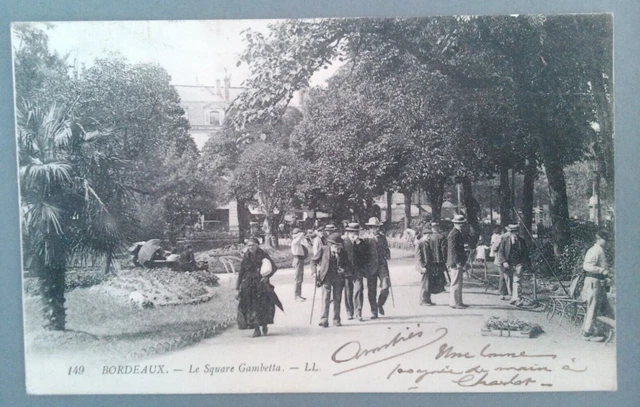 149 BORDEAUX. — Le Square Gambetta. — LL.
Amitiés
Une bonne
poignée de main à
Charlot —